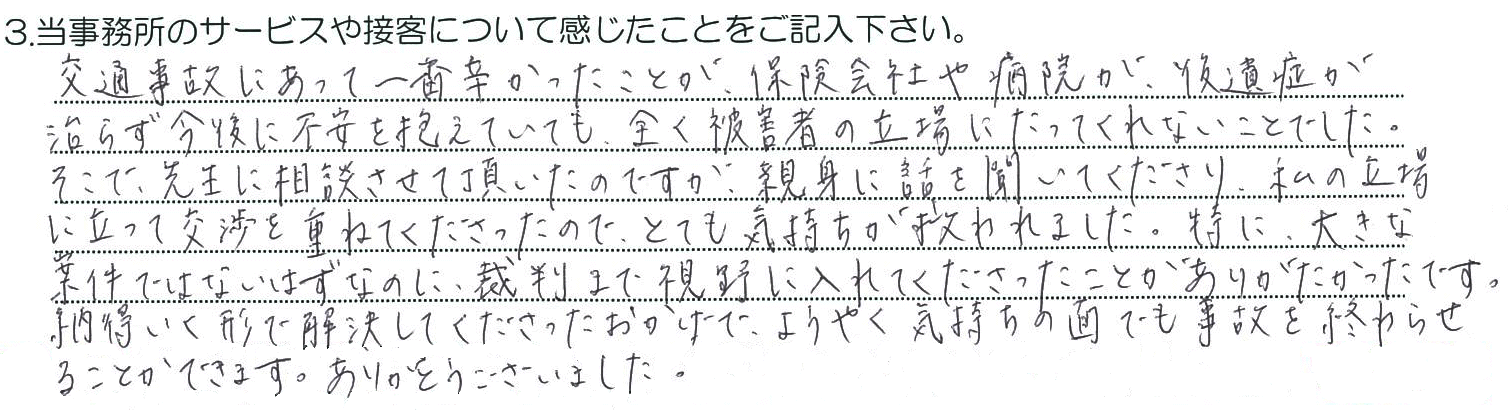 3.当事務所のサービスや接客について感じたことをご記入下さい。
交通事故にあって一番辛かったことが、保険会社や病院が、後遺症が
治らず今後に不安を抱えていても、全く被害者の立場にたってくれないことでした。
そこで、先生に相談させて頂いたのですが、親身に話を聞いてくださり、私の立場
に立って交渉を重ねてくださったので、とても気持ちが救われました。特に、大きな
案件ではないはずなのに、裁判まで視野に入れてくださったことがありがたかったです。
納得いく形で解決してくださったおかげで、ようやく気持ちの面でも事故を終わらせ
ることができます。ありがとうございました。